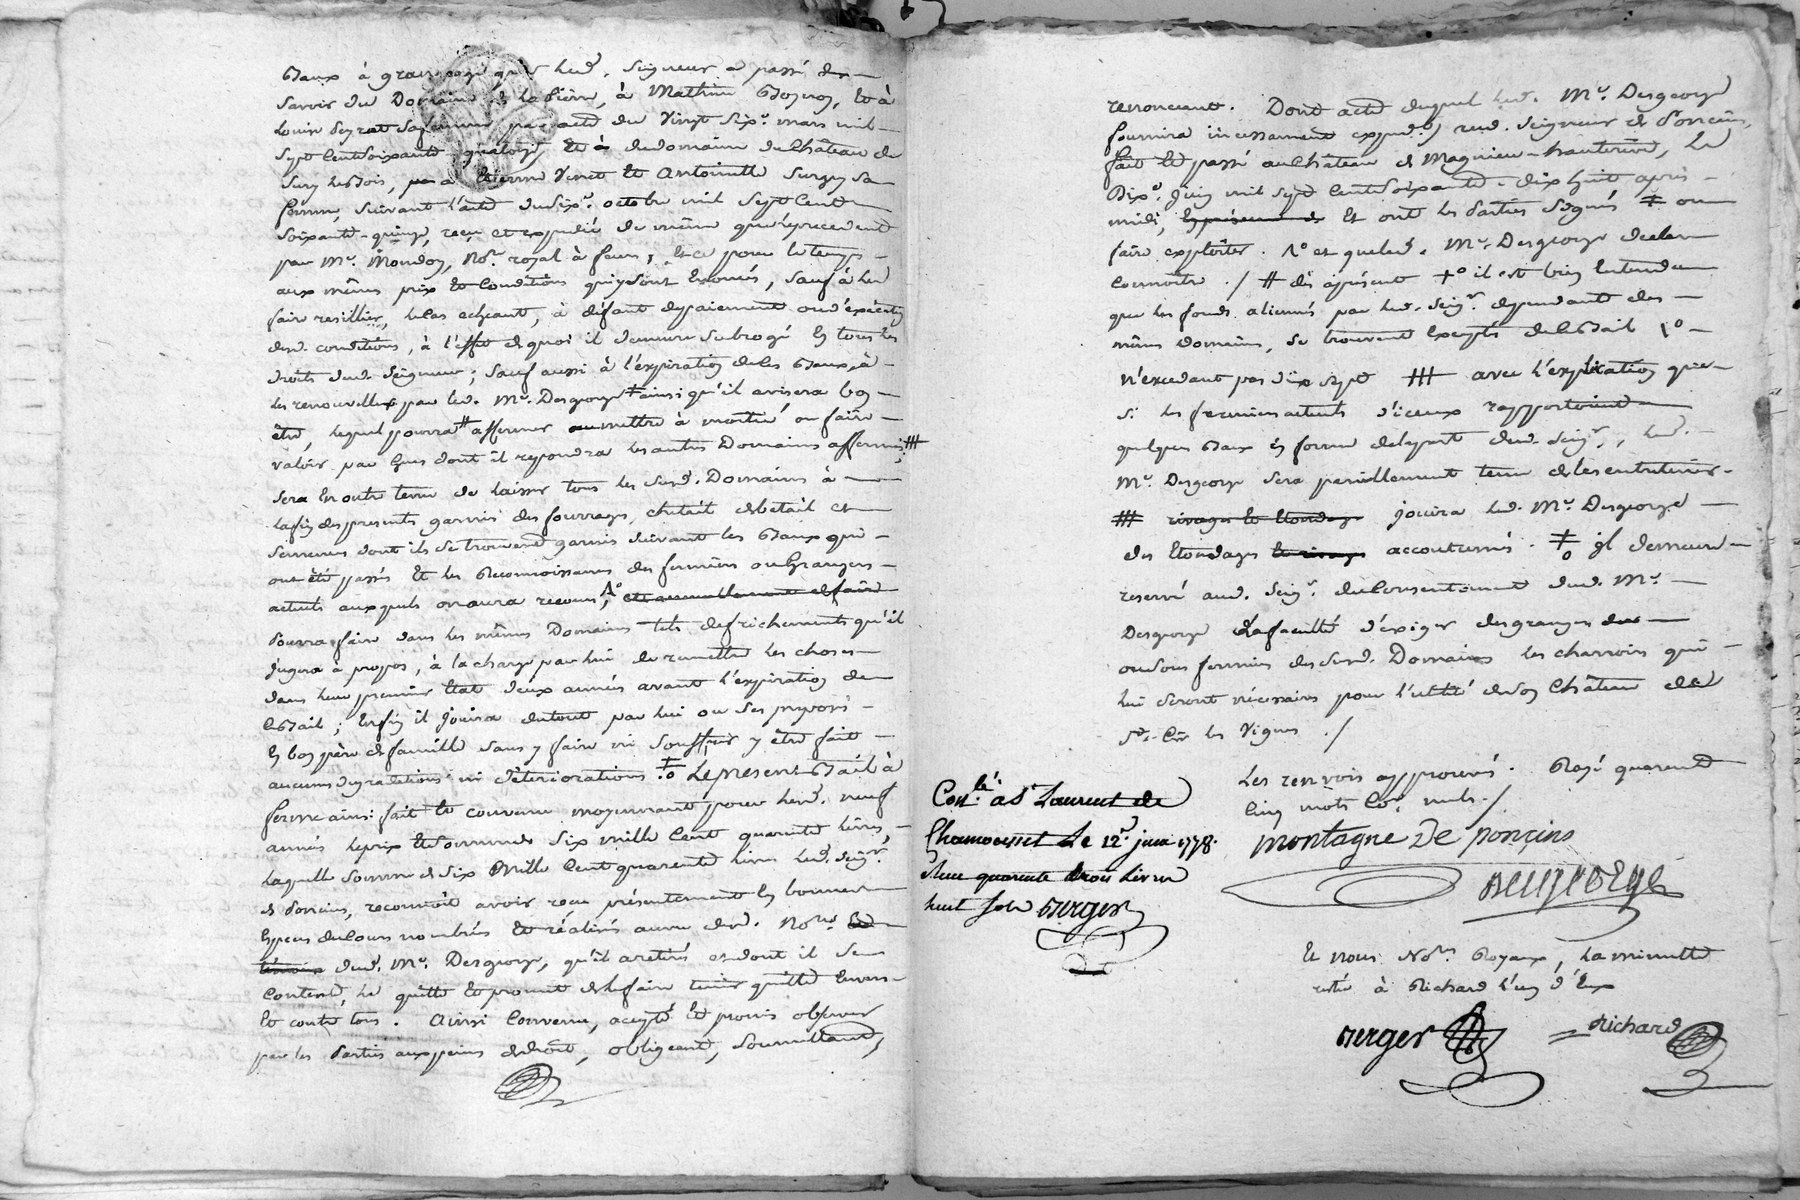 Baux à grangeage qu'led. Seigneur a passé des
savoir du Domaine de la pière, à Mathieu Et à
Louis Seyrat sa femme par acte du Vingt Six.e mars mil
Sept Cent Soixante quatorze, Et à du domaine du Château de
Sury le Bois, a Etienne Vinet Et Antoinette Surgey Sa
femme, Suivant l'acte du Six.e octobre mil Sept Cent
Soixante-quinze, reçu et expedié de même que le precedent
par M.e Mondon, No.re royal à feurs, Et ce pour le temps
aux mêmes prix Et Conditions qui y sont Enoncés, Sauf à les
faire resillier, le cas echeant, à défaut de payement ou d'exécution
desd. conditions, à l'effet de quoi il demeure Subrogé En tous les
droits dud. Seigneur; Sauf aussi à l'expiration de les Baux, à
les renouveller par led. M.e Desgeorge ‡ ainsi qu'il avisera bon
être, lequel pourra # affermer ou mettre à moitié ou faire
valoir par Gens dont il repondra les autres Domaines affermés; ⧻
Sera En outre tenu de laisser tous les Susd. Domaines à
la fin des presentes garnis des fourrages, cheptel de bétail et
Semences dont ils Se trouvent garnis Suivant les Baux qui
ont été passés Et les Reconnoissances des fermiers ou Grangers
actuels auxquels on aura recours; A° et
Pourra faire dans les mêmes Domaines tels defrichements qu'il
Jugera à propos, à la charge par lui de remettre les choses
dans leur premier Etat deux années avant l'expiration de
ce Bail; Enfin il Jouira du tout par lui ou Ses preposés
En bon père de famille Sans y faire ni Souffrir y être fait
aucunes degradations ni détériorations ‡o Le present Bail à
ferme ainsi fait Et convenu moyennant pour lesd. neuf
années le prix Et Somme de Six mille Cent quarante livres,
Laquelle Somme de Six Mille Cent quarante livres led. Seig.r
de Poncins, reconnoît avoir reçu présentement En bonnes
Especes de Cours nombrés Et réalisés au vu desd. No.res Et
témoins dud. M.e Desgeorge, qu'il a retirés et dont il Se
Contente, Le quitte Et promet de le faire tenir quitte Envers
Et contre tous. Ainsi Convenu, accepté Et promis observer
par les Parties aux peines de droit, obligeant, Soumettant,
renonceant. Dont acte duquel led. M.e Desgeorge
fournira incessament expedi.on aud. Seigneur de Poncins,
fait Et passé au Château de Magnieu-hauterive, Le
Dix.e Juin mil Sept Cent Soixante-dix huit après
midi, Et ont les Parties Signés ‡ ou
faire exploiter. A° et que led. M.e Desgeorge declare
Connoître ./ # dès àprésent +° il est bien Entendu
que les fonds alienés par led. Seig.r dependants des
mêmes Domaines, Se trouvent Exceptés de ce Bail \°
n'excedant pas dix Sept ⧻ avec l'explication que
Si les fermiers actuels d'iceux rapportoient
quelques Baux En forme de la part dud. Seig.r, led.
M.e Desgeorge Sera pareillement tenu de les entretenir
⧻ rivages Et Etendages Jouira led. M.e Desgeorge
des Etendages Et rivages accoutumés. ‡o Il demeure
reservé aud. Seig.r du Consentement dud. M.e
Desgeorge La faculté d'exiger des granges des
ou Sous fermiers des Susd. Domaines les charrois qui
lui Seront nécessaires pour l'utilité de Son Château de
St. Cir les Vignes ./
Les renvois approuvés. Rayé quarante
Cinq mots Co.e nuls ./
Con.lé à St Laurent de
Chamousset Le 12.e juin 1778.
Reçu quarante trois Livres
huit Sols Berger
montagne De poncins
Desgeorge
Et nous No.res Royaux, La minutte
restée à Richard l'un d'Eux
Berger
Richard